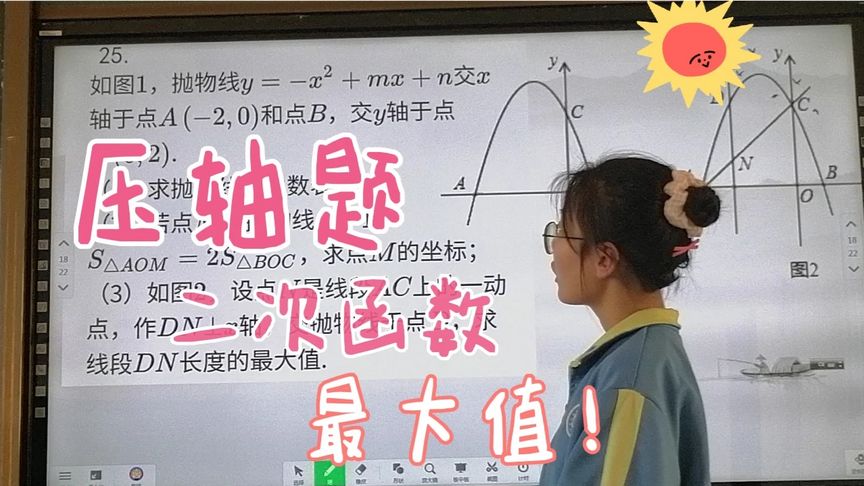 25.
如图1，抛物线y = −x² + mx + n交x
轴于点A (−2, 0)和点B，交y轴于点
2).
求抛物
S△AOM = 2S△BOC，求点M的坐标；
（3）如图2，设点N是线段AC上 一动
点，作DN⊥x轴 抛物线于点 求
线段DN长度的最大值.
压轴题
二次函数
最大值！
y
C
A
y
D
C
N
O
B
图2
18
22
18
22
选择
笔
橡皮
形状
放大镜
板中板
截图
计时